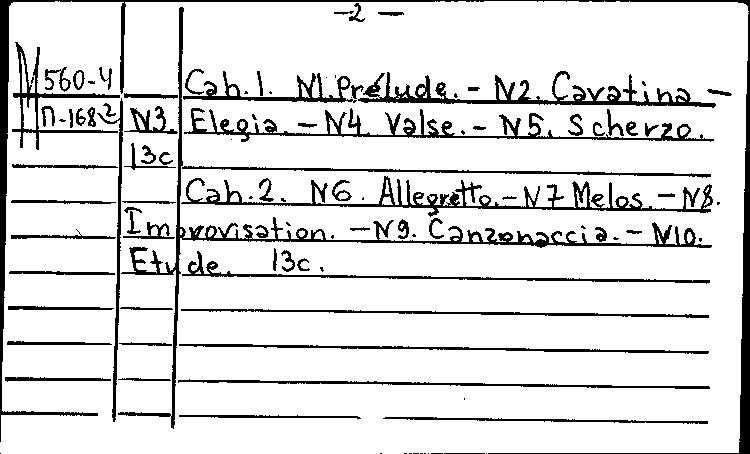 -2-
M 560-4 Cah.1. N1.Prélude.- N2. Cavatina -
П-168-2 N3. Elegia.- N4. Valse.- N5. Scherzo.
13c
Cah.2. N6. Allegretto.- N7 Melos.- N8.
Improvisation. - N9. Canzonaccia.- N10.
Etude. 13c.